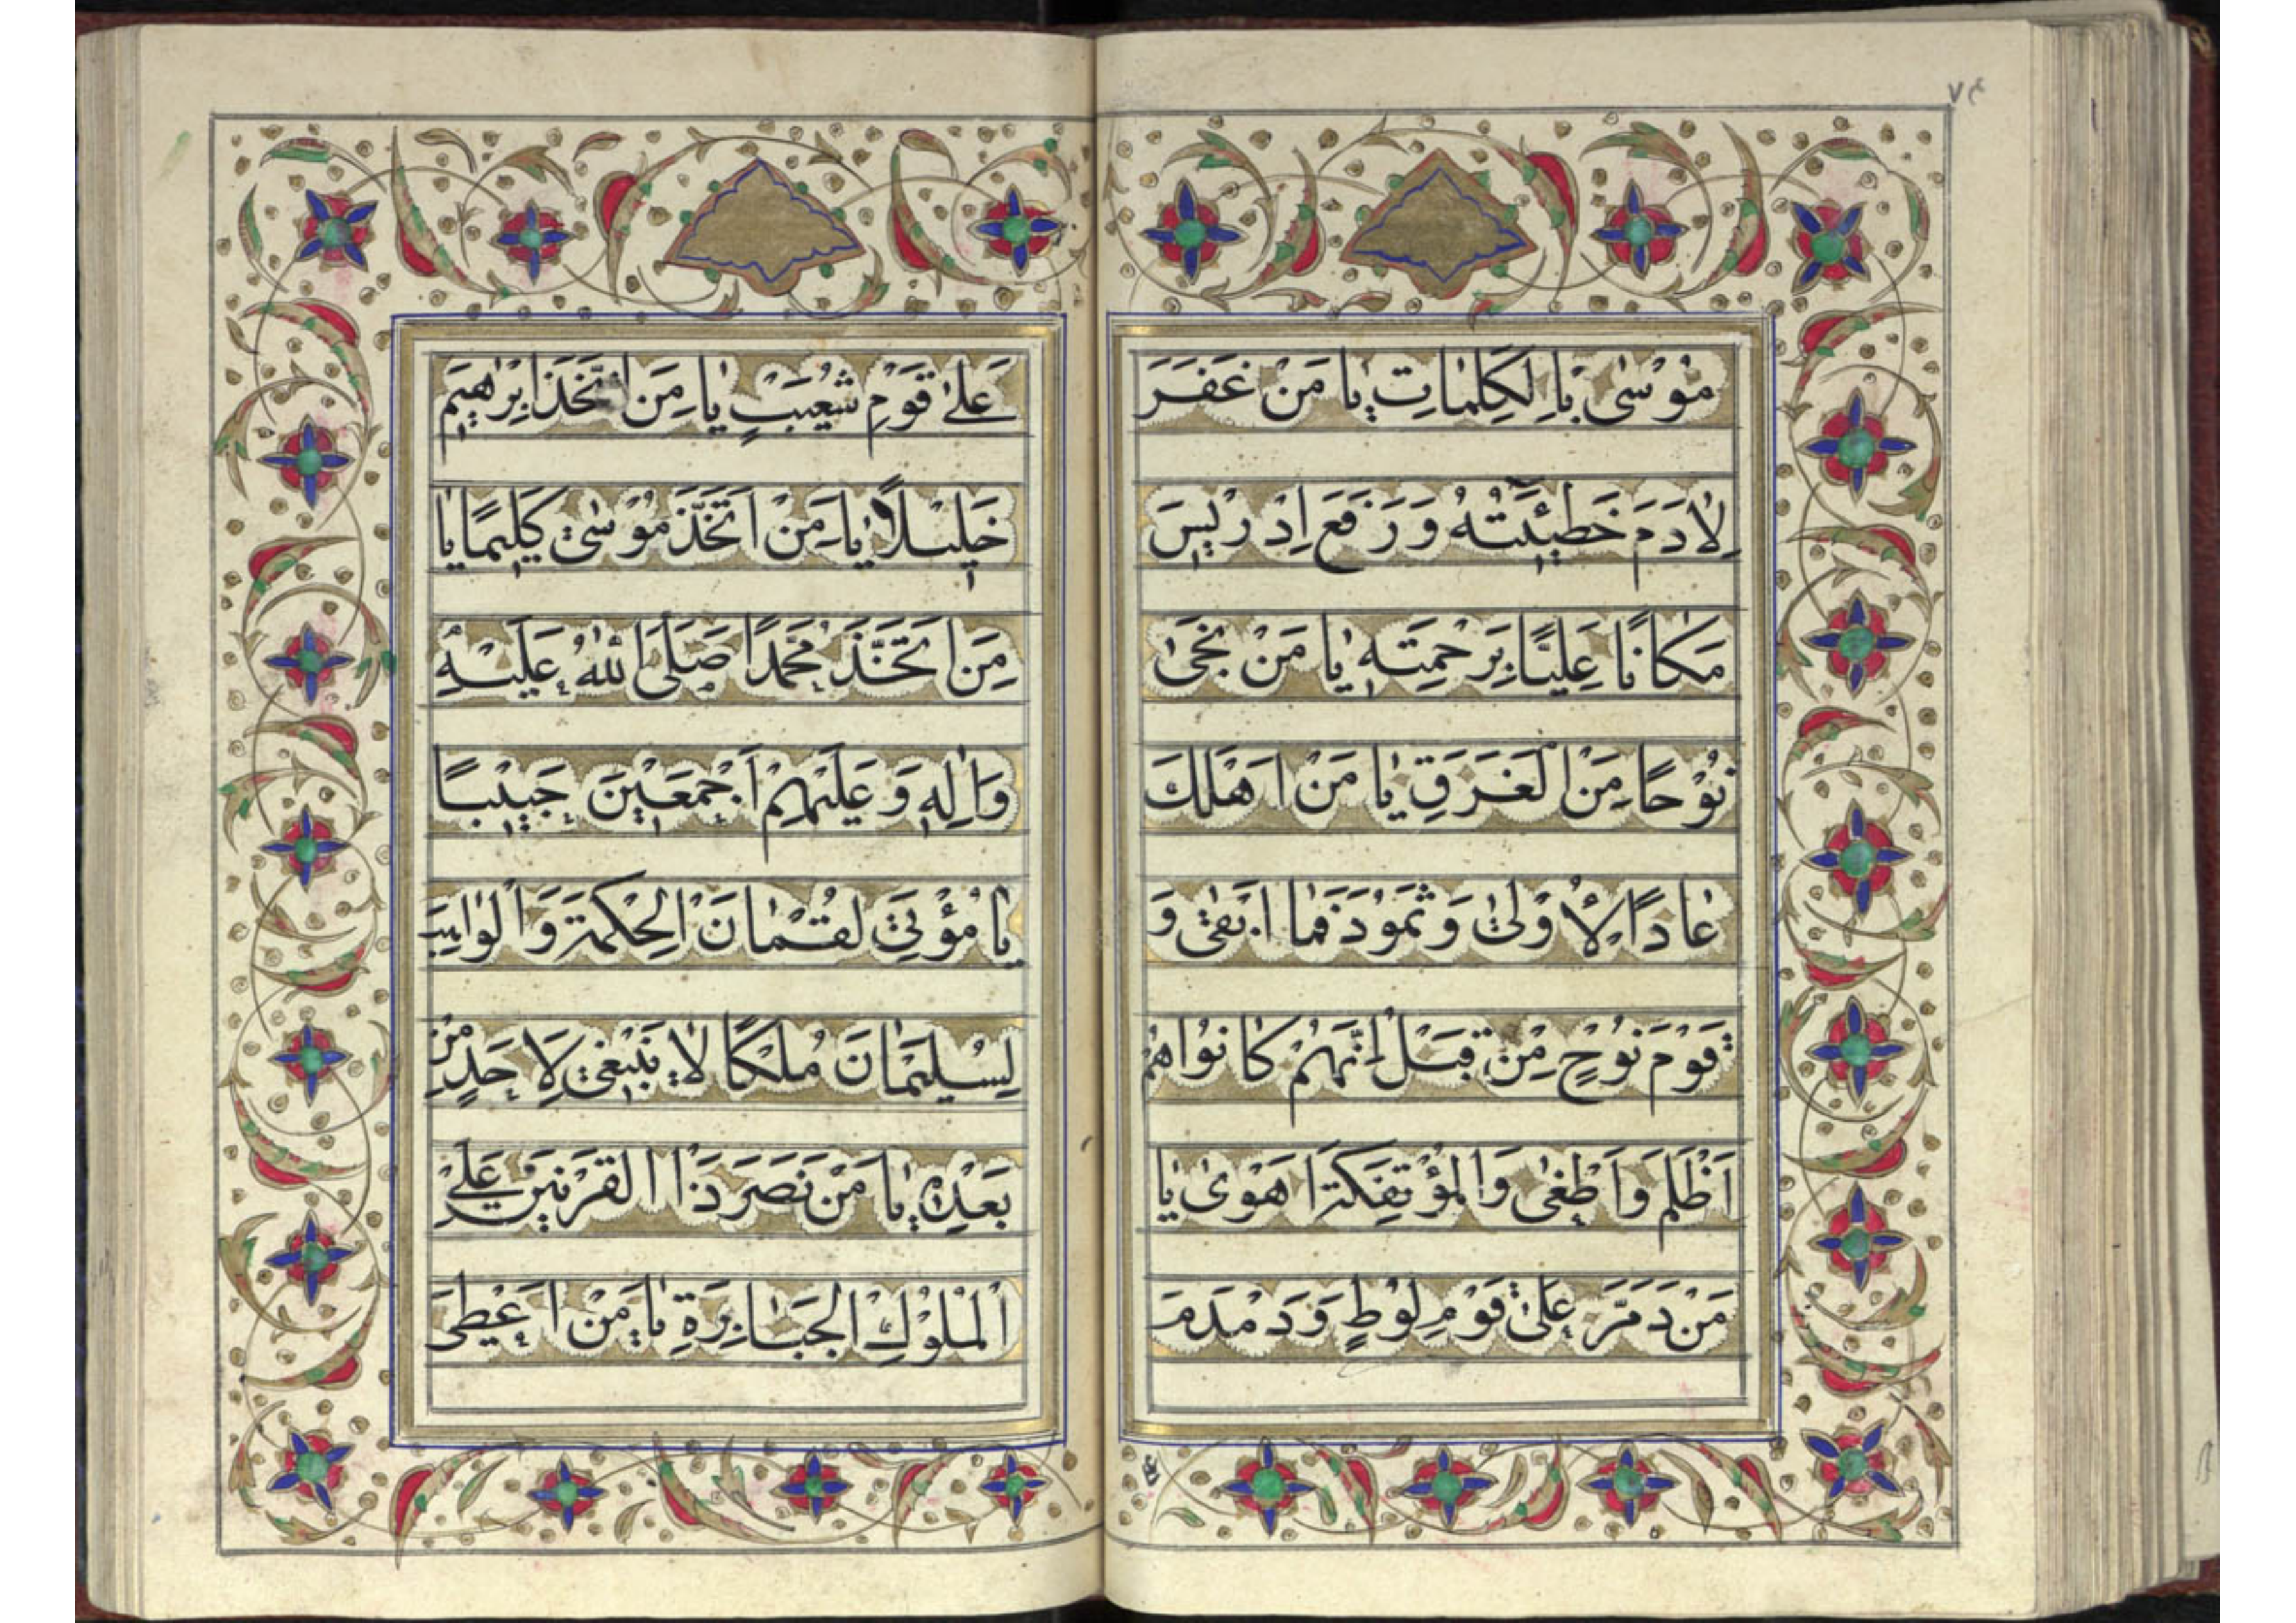 ۷۴
مُوْسٰى بِالْكَلِمَاتِ يَا مَنْ غَفَرَ
لِاٰدَمَ خَطِيْئَتَهُ وَ رَفَعَ اِدْرِيْسَ
مَكَانًا عَلِيًّا بِرَحْمَتِهِ يَا مَنْ نَجّٰى
نُوْحًا مِنَ الْغَرَقِ يَا مَنْ اَهْلَكَ
عَادًا الْاُوْلٰى وَ ثَمُوْدَ فَمَا اَبْقٰى وَ
قَوْمَ نُوْحٍ مِنْ قَبْلُ اِنَّهُمْ كَانُوْا هُمْ
اَظْلَمَ وَ اَطْغٰى وَ الْمُؤْتَفِكَةَ اَهْوٰى يَا
مَنْ دَمَّرَ عَلٰى قَوْمِ لُوْطٍ وَ دَمْدَمَ
عَلٰى قَوْمِ شُعَيْبٍ يَا مَنِ اتَّخَذَ اِبْرٰهِيْمَ
خَلِيْلًا يَا مَنْ اتَّخَذَ مُوْسٰى كَلِيْمًا يَا
مَنِ اتَّخَذَ مُحَمَّدًا صَلَّى اللّٰهُ عَلَيْهِ
وَ اٰلِهِ وَ عَلَيْهِمْ اَجْمَعِيْنَ حَبِيْبًا
يَا مُؤْتِيَ لُقْمَانَ الْحِكْمَةَ وَ الْوَاهِبَ
لِسُلَيْمَانَ مُلْكًا لَا يَنْبَغِيْ لِاَحَدٍ مِنْ
بَعْدِهِ يَا مَنْ نَصَرَ ذَا الْقَرْنَيْنِ عَلَى
الْمُلُوْكِ الْجَبَابِرَةِ يَا مَنْ اَعْطَى